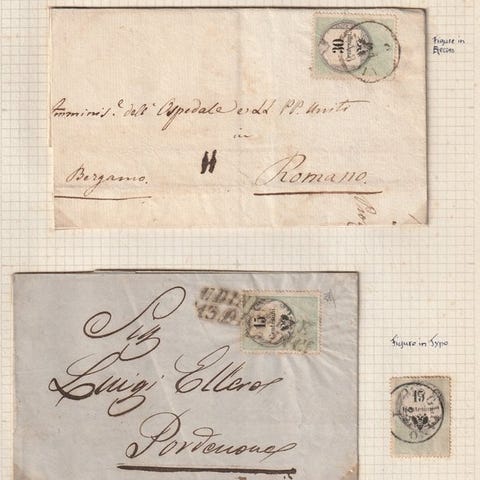 Figure in
30
Amminis.e dell' Ospedale e LL PP. Uniti
in
Bergamo.
H
Romano.
UDINE
15
Sig
Luigi Ellero
Pordenone
Figure in Typo
15